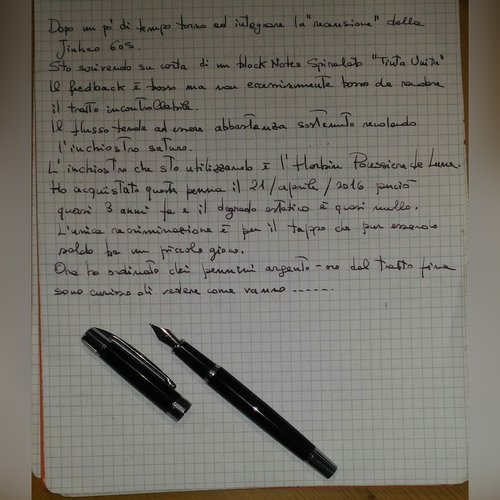 Dopo un pò di tempo torno ed integrare la "recensione" della
Jinhao 605.
Sto scrivendo su carta di un block Notes Spiralato "Tinta Unita"
Il feedback è basso ma non eccessivamente basso da rendere
il tratto incontrollabile.
Il flusso tende ad essere abbastanza sostenuto rendendo
l'inchiostro saturo.
L'inchiostro che sto utilizzando è l'Herbin Poussiere de Lune.
Ho acquistato questa penna il 21/aprile/2016 perciò
quasi 3 anni fa e il degrado estetico è quasi nullo.
L'unica recriminazione è per il tappo che pur essendo
saldo ha un piccolo gioco.
Ora ho ordinato dei pennini argento-oro dal tratto fine
sono curioso di vedere come vanno ......